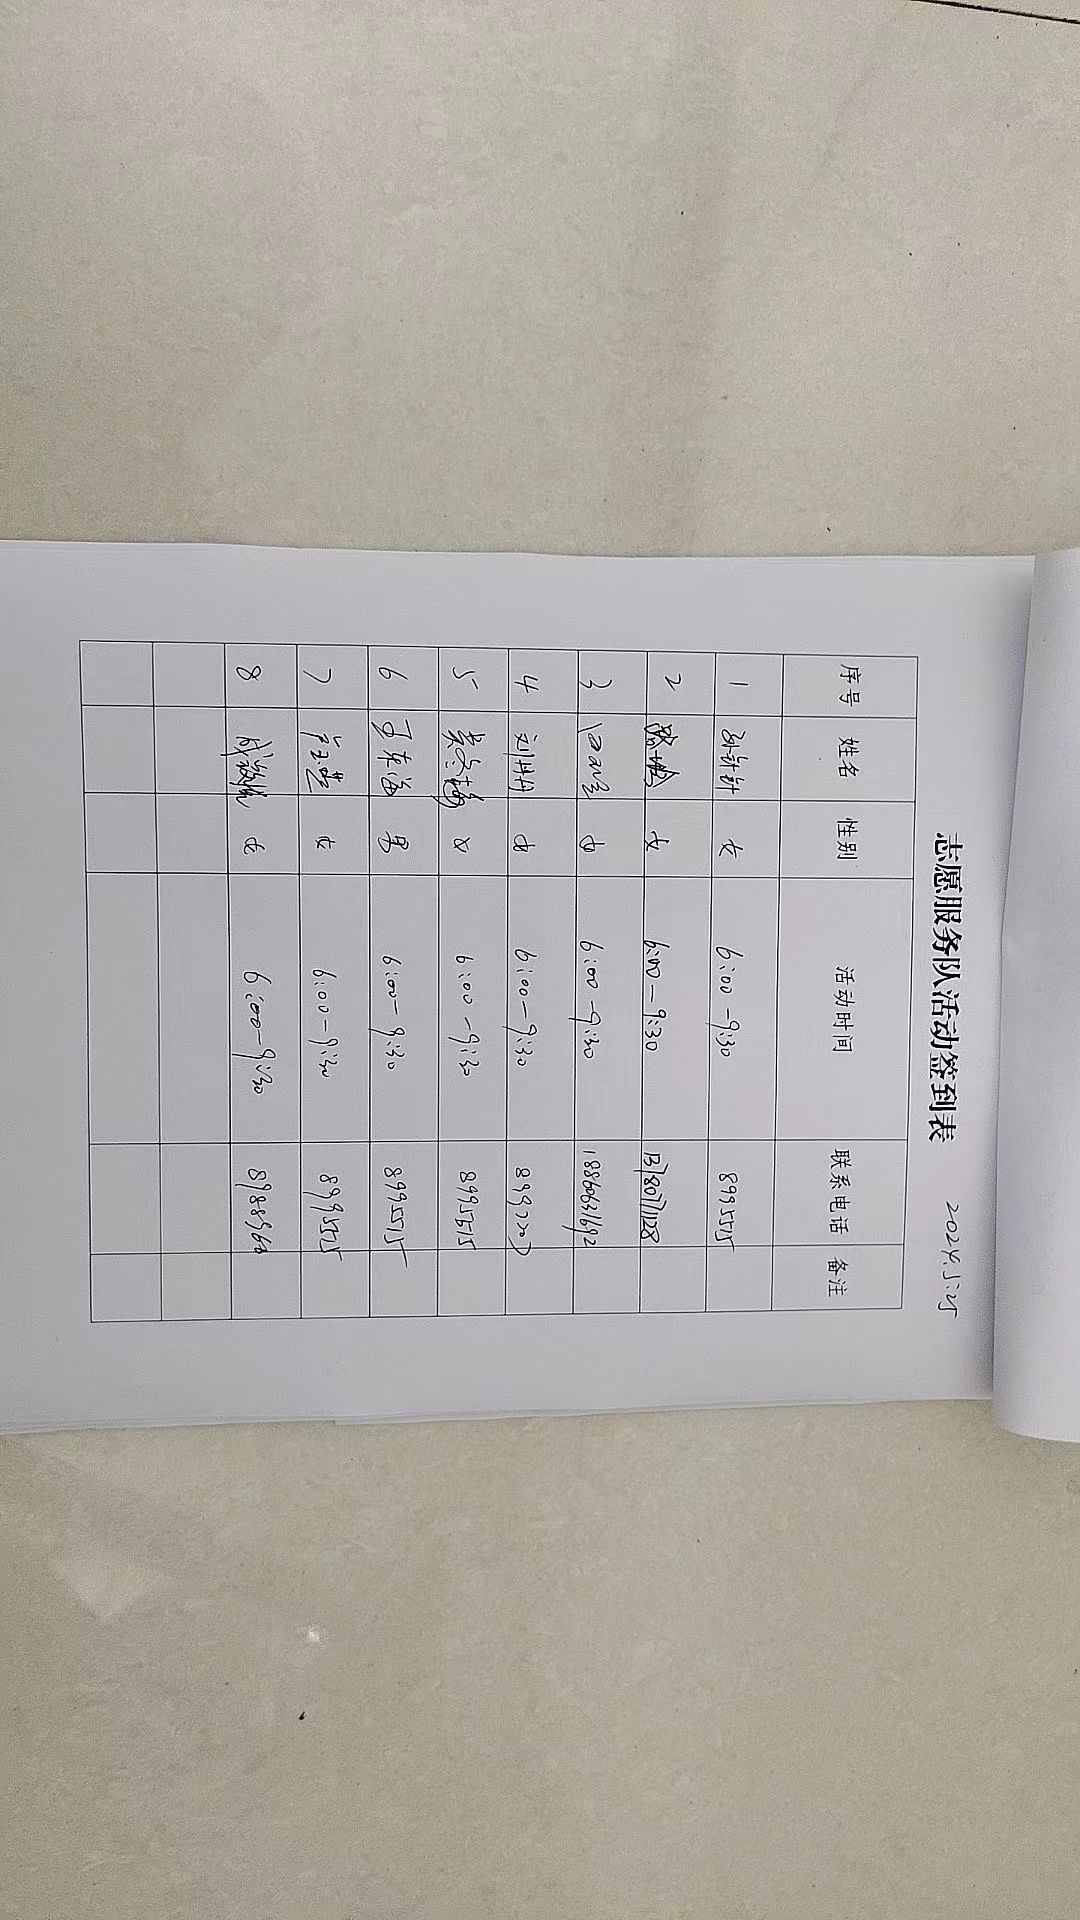 志愿服务队活动签到表 2024.5.25
序号 姓名 性别 活动时间 联系电话 备注
1 孙针针 女 6:00-9:30 8995515
2 女 6:00-9:30 13780771128
3 女 6:00-9:30 18860631692
4 刘丹丹 女 6:00-9:30
5 女 6:00-9:30 8995515
6 于东海 男 6:00-9:30 8995515
7 卢云芸 女 6:00-9:30 8995515
8 女 6:00-9:30 8988960